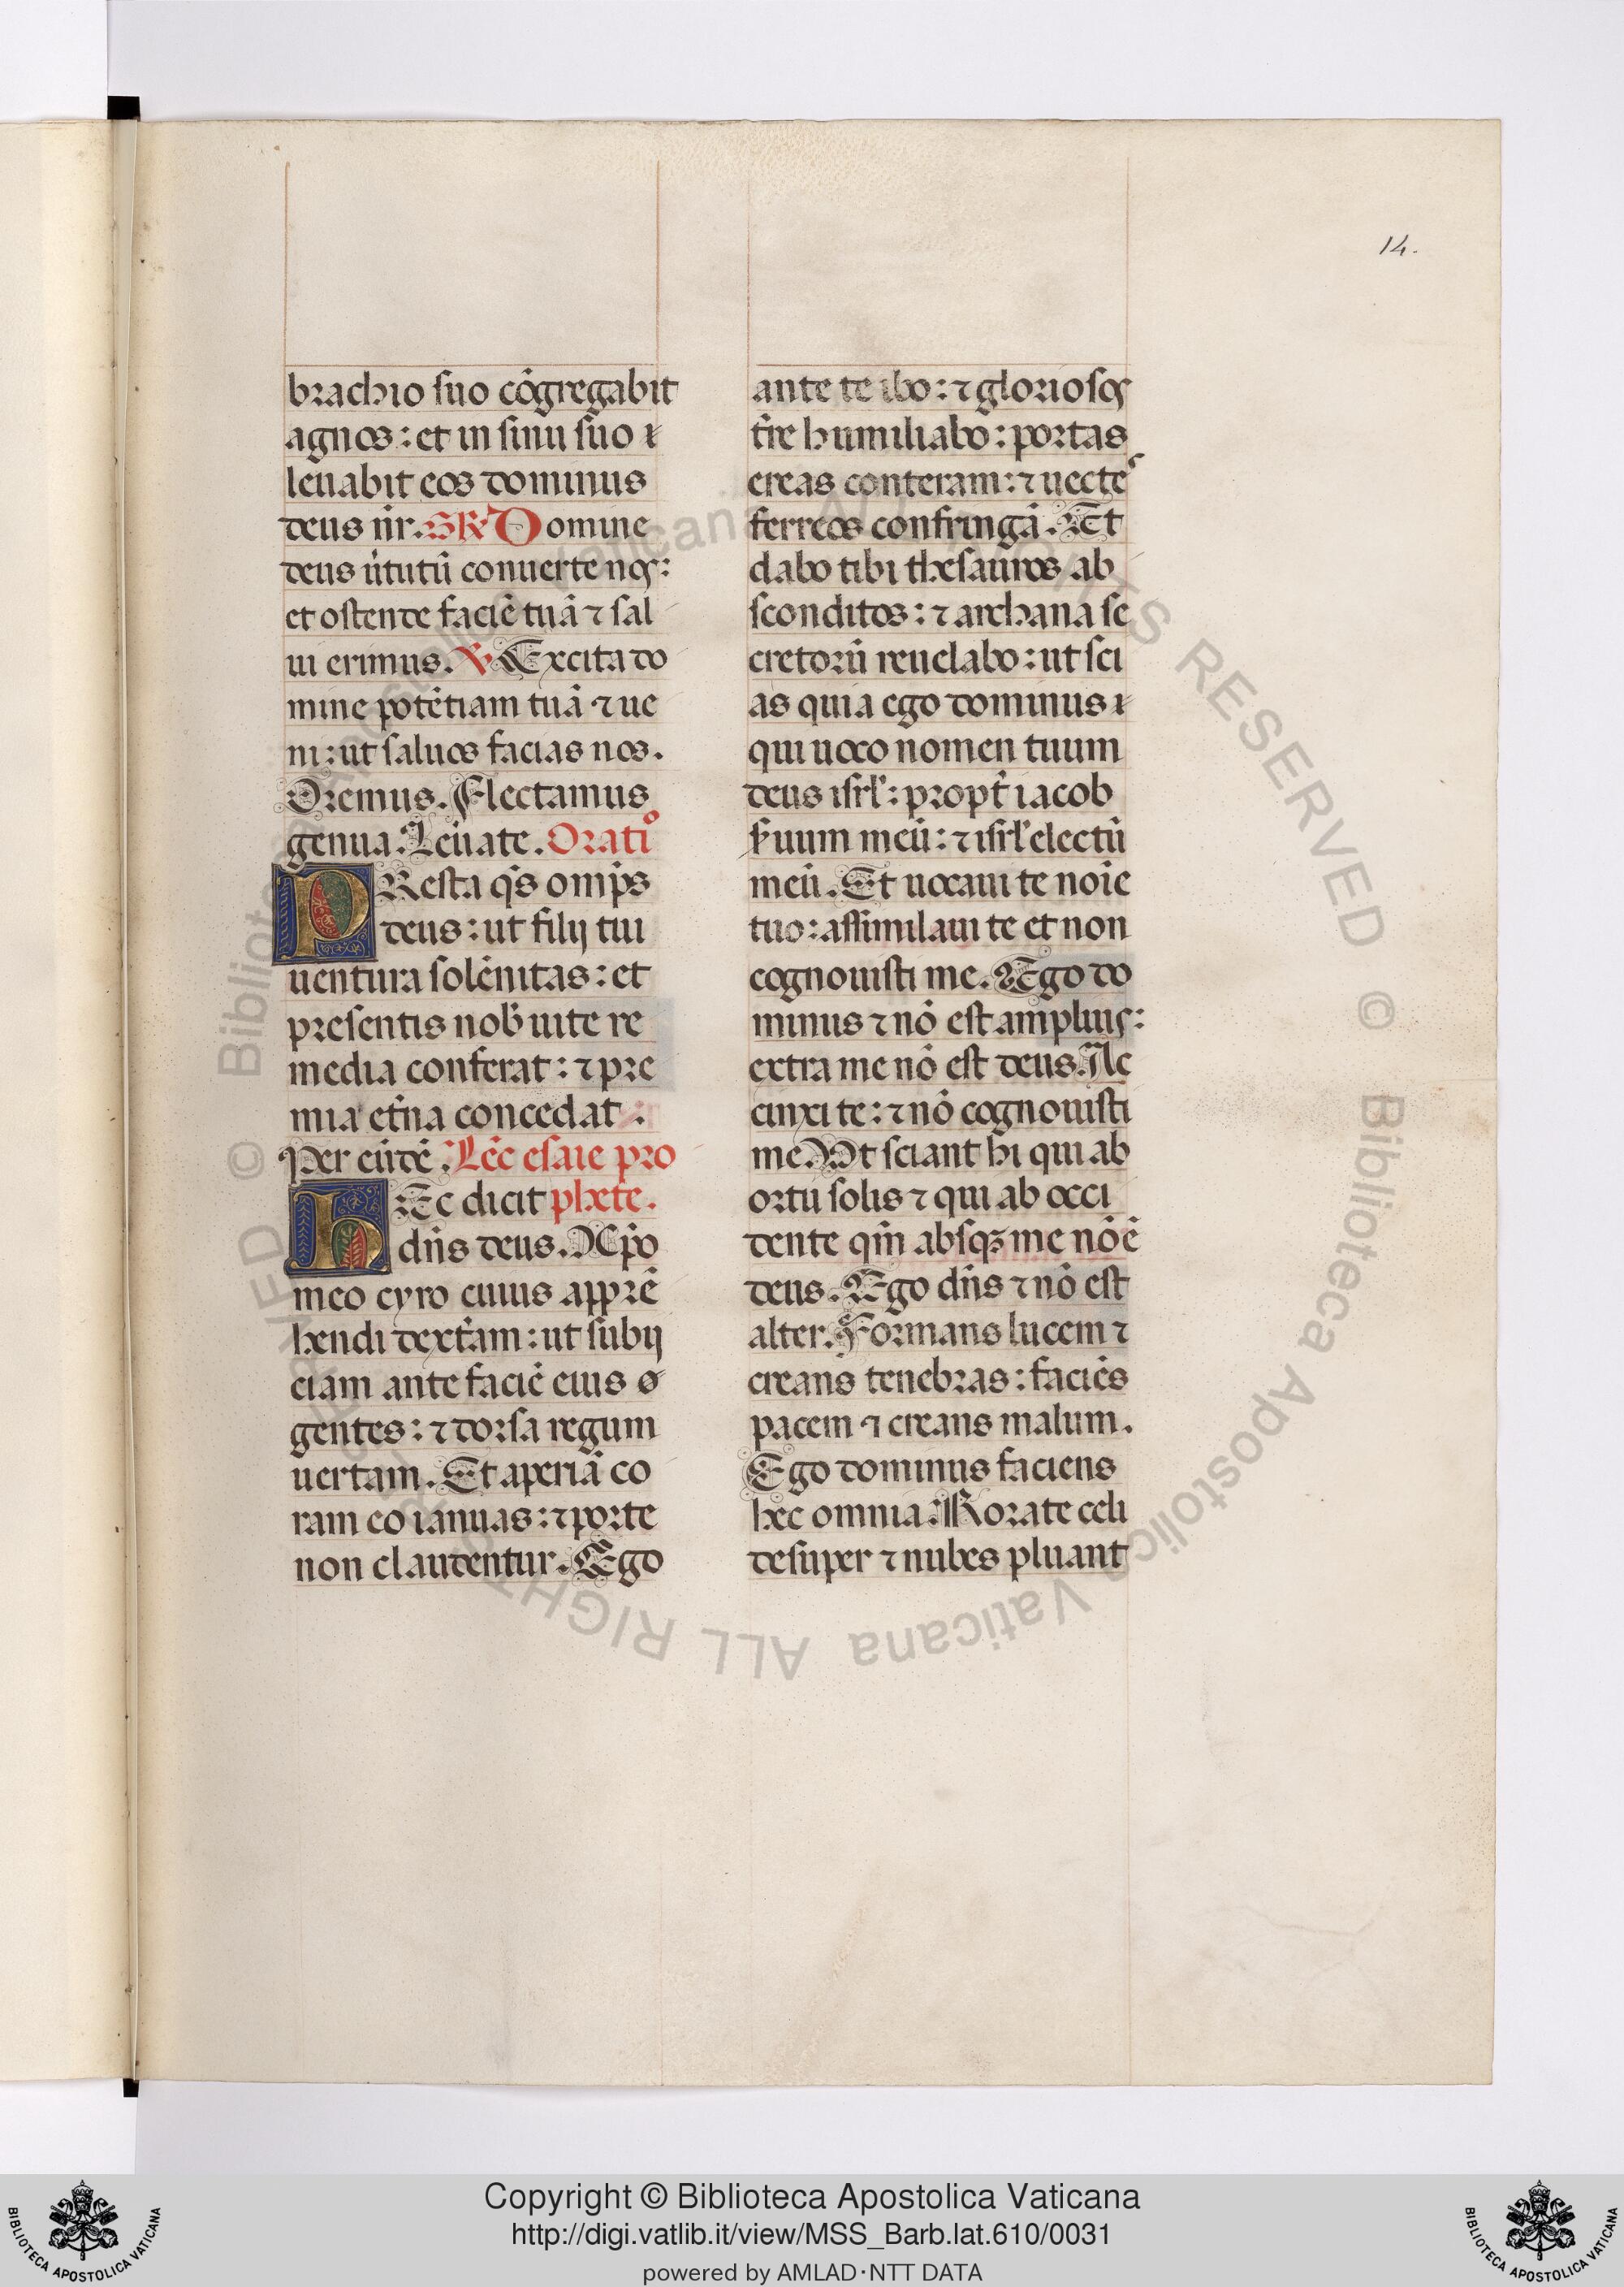 14.
brachio suo cōgregabit
agnos: et in sinu suo
leuabit eos dominus
deus nr̄. GR Domine
deus ut̄utū conuerte nos:
et ostende faciē tuā ⁊ sal
ui erimus. V Excita do
mine potētiam tuā ⁊ ue
ni: ut saluos facias nos.
Oremus. Flectamus
genua. Leuate. Oratio
PResta qs̄ omps̄
deus: ut filij tui
uentura solēnitas: et
presentis nob̄ uite re
media conferat: ⁊ pre
mia et̄na concedat:
Per eūdē. Lēc esaie pro
HEc dicit phete.
dn̄s deus. Xp̄o
meo cyro cuius apprē
hendi dext̄am: ut subij
ciam ante faciē eius
gentes: ⁊ dorsa regum
uertam. Et aperiā co
ram eo ianuas: ⁊ porte
non claudentur. Ego
ante te ibo: ⁊ gloriosos
tr̄e humiliabo: portas
ereas conteram: ⁊ uectes
ferreos confringā. Et
dabo tibi thesauros ab
sconditos: ⁊ archana se
cretorū reuelabo: ut sci
as quia ego dominus
qui uoco nomen tuum
deus isrl̄: propt̄ iacob
s̄uum meū: ⁊ isrl̄ electū
meū. Et uocaui te noīe
tuo: assimilaui te et non
cognouisti me. Ego do
minus ⁊ nō est amplius:
extra me nō est deus. Ac
cinxi te: ⁊ nō cognouisti
me. Ut sciant hi qui ab
ortu solis ⁊ qui ab occi
dente qm̄ absqꝫ me nō ē
deus. Ego dn̄s ⁊ nō est
alter. Formans lucem ⁊
creans tenebras: faciēs
pacem ⁊ creans malum.
Ego dominus faciens
hec omnia. Rorate celi
desuper ⁊ nubes pluant
© Biblioteca Apostolica Vaticana ALL RIGHTS RESERVED © Biblioteca Apostolica Vaticana ALL RIGHTS RESERVED
Copyright © Biblioteca Apostolica Vaticana
http://digi.vatlib.it/view/MSS_Barb.lat.610/0031
powered by AMLAD·NTT DATA
BIBLIOTECA APOSTOLICA VATICANA
BIBLIOTECA APOSTOLICA VATICANA